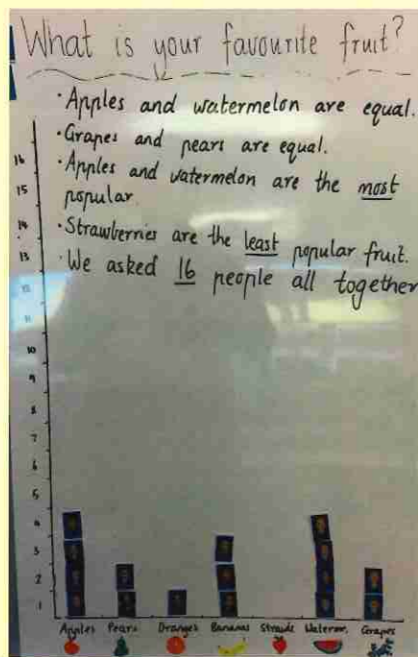 What is your favourite fruit?
· Apples and watermelon are equal.
· Grapes and pears are equal.
· Apples and watermelon are the most
popular.
· Strawberries are the least popular fruit.
· We asked 16 people all together
16
15
14
13
12
11
10
9
8
7
6
5
4
3
2
1
Apples Pears Oranges Bananas Strawbs Waterm. Grapes